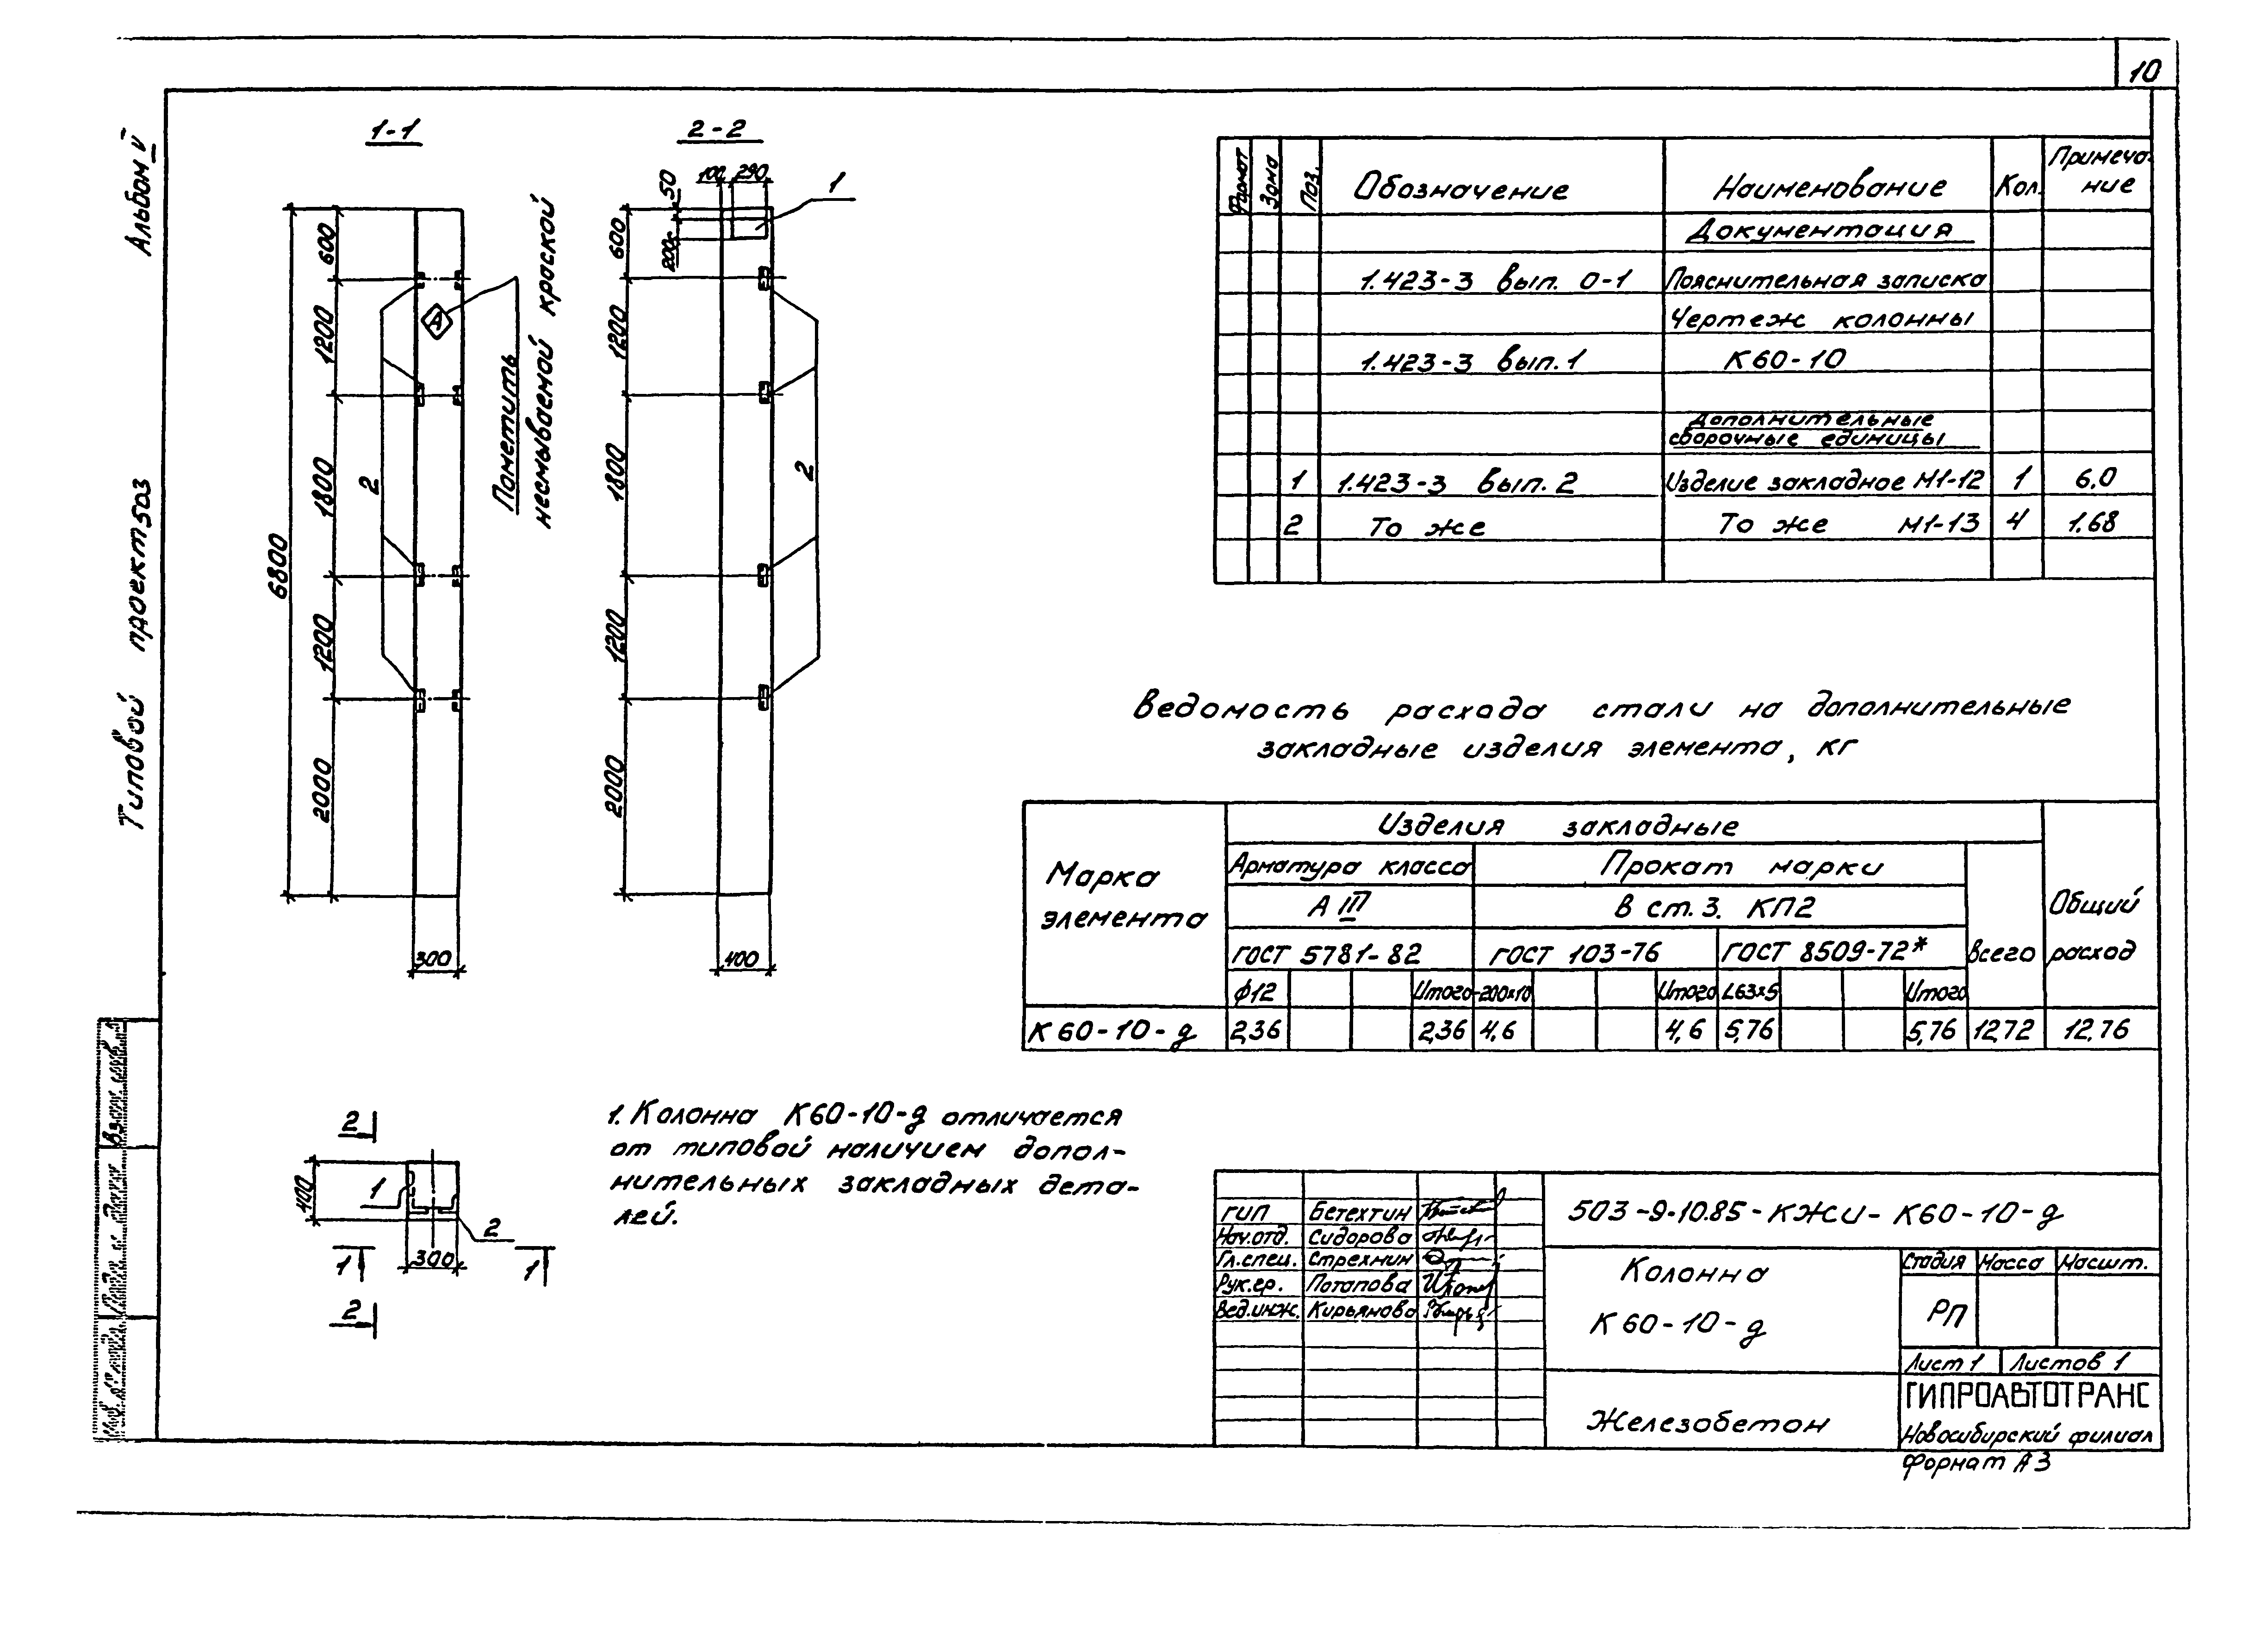 10
Альбом V
Типовой проект 503
1-1
2-2
6800
600
1200
1800
1200
2000
2
А
Пометить
несмываемой краской
300
50
100
290
1
200
600
1200
1800
1200
2000
2
400
Формат Зона Поз. Обозначение Наименование Кол. Примеча-
ние
Документация
1.423-3 вып. 0-1 Пояснительная записка
Чертеж колонны
1.423-3 вып. 1 К60-10
Дополнительные
сборочные единицы
1 1.423-3 вып. 2 Изделие закладное М1-12 1 6.0
2 То же То же М1-13 4 1.68
Ведомость расхода стали на дополнительные
закладные изделия элемента, кг
Марка
элемента
Изделия закладные
Арматура класса Прокат марки
А III В ст. 3. КП2
ГОСТ 5781-82 ГОСТ 103-76 ГОСТ 8509-72* Всего
Общий
расход
ф12 Итого -200х10 Итого L63х5 Итого
К 60-10-д 2,36 2,36 4,6 4,6 5,76 5,76 12,72 12,76
2
400
1
2
1 300 1
2
1. Колонна К60-10-д отличается
от типовой наличием допол-
нительных закладных дета-
лей.
ГИП Бетехтин
Нач.отд. Сидорова
Гл.спец. Стрехнин
Рук.гр. Потапова
Вед.инж. Кирьянова
503-9-10.85-КЖИ-К60-10-д
Колонна
К 60-10-д
Стадия Масса Масшт.
РП
Лист 1 Листов 1
Железобетон
ГИПРОАВТОТРАНС
Новосибирский филиал
Формат А3
Взам инв.